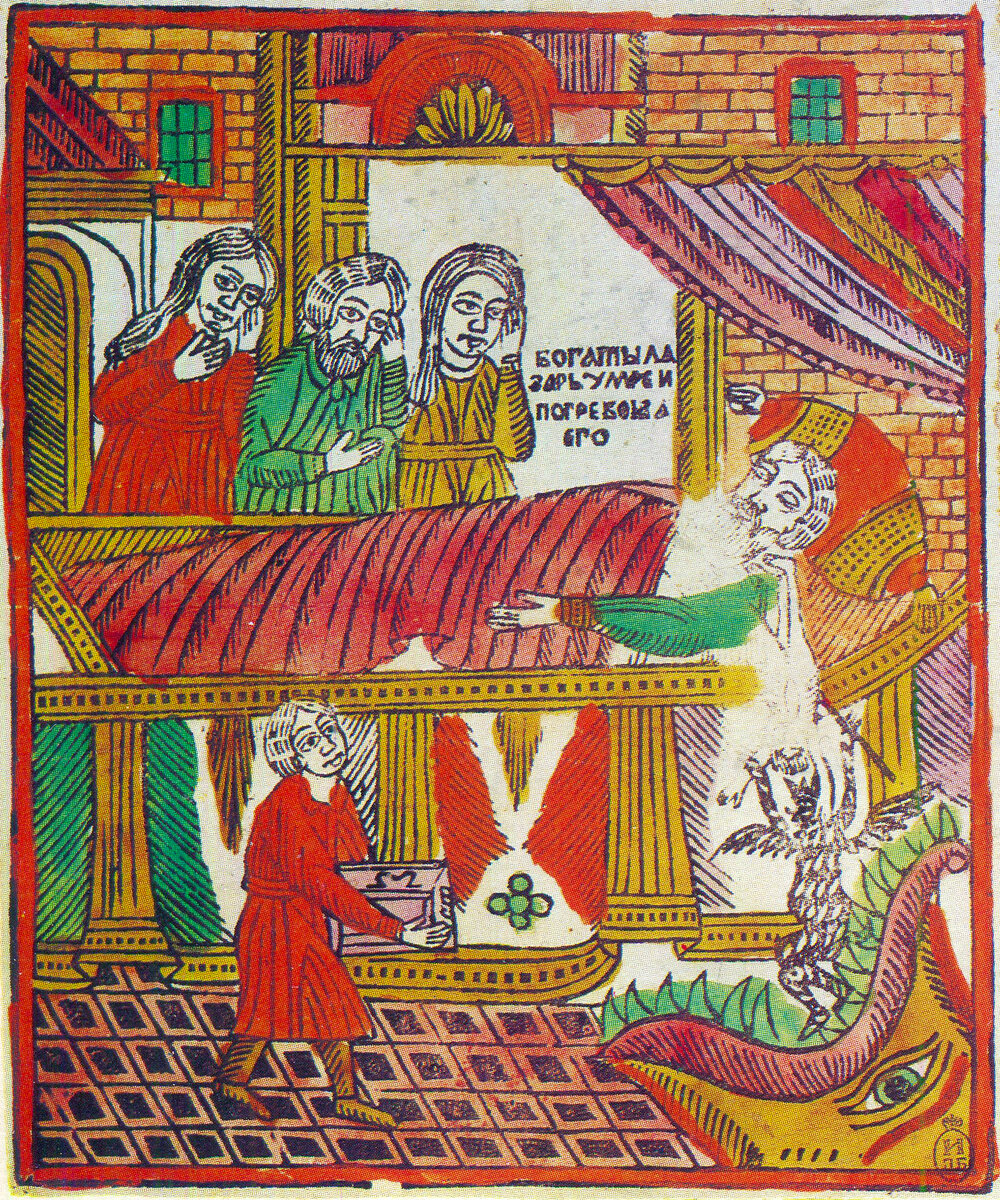 БОГАТЫ ЛА
ЗАРЬ УМРЕ И
ПОГРЕБОША
ЕГО